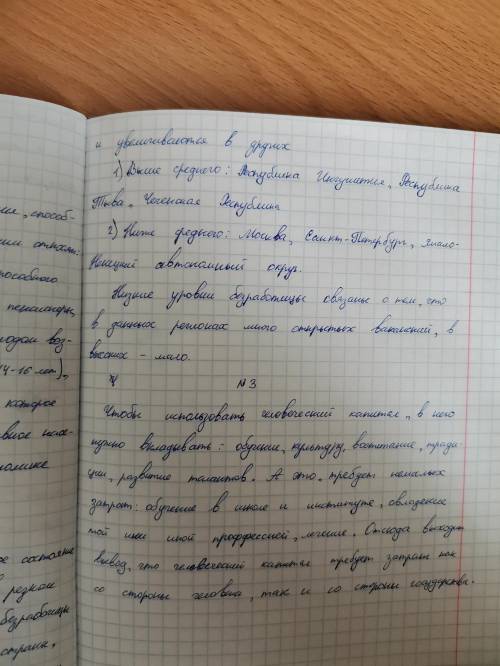 и увеличиваются в других
1) Выше среднего: Республика Ингушетия, Республика
Тыва, Чеченская Республика
2) Ниже среднего: Москва, Санкт-Петербург, Ямало-
Ненецкий автономный округ.
Низкие уровни безработицы связаны с тем, что
в данных регионах много открытых вакансий, в
высоких - мало.
№3
Чтобы использовать человеческий капитал, в него
нужно вкладывать: обучение, культуру, воспитание, тради-
ции, развитие талантов. А это требует немалых
затрат: обучение в школе и институте, овладение
той или иной проффессией, лечение. Отсюда выходит
вывод, что человеческий капитал требует затрат как
со стороны человека, так и со стороны государства.
способ-
пособного
пенсионеры,
14-16 лет),
которое
ое состояние
резком
безработицы
страны.